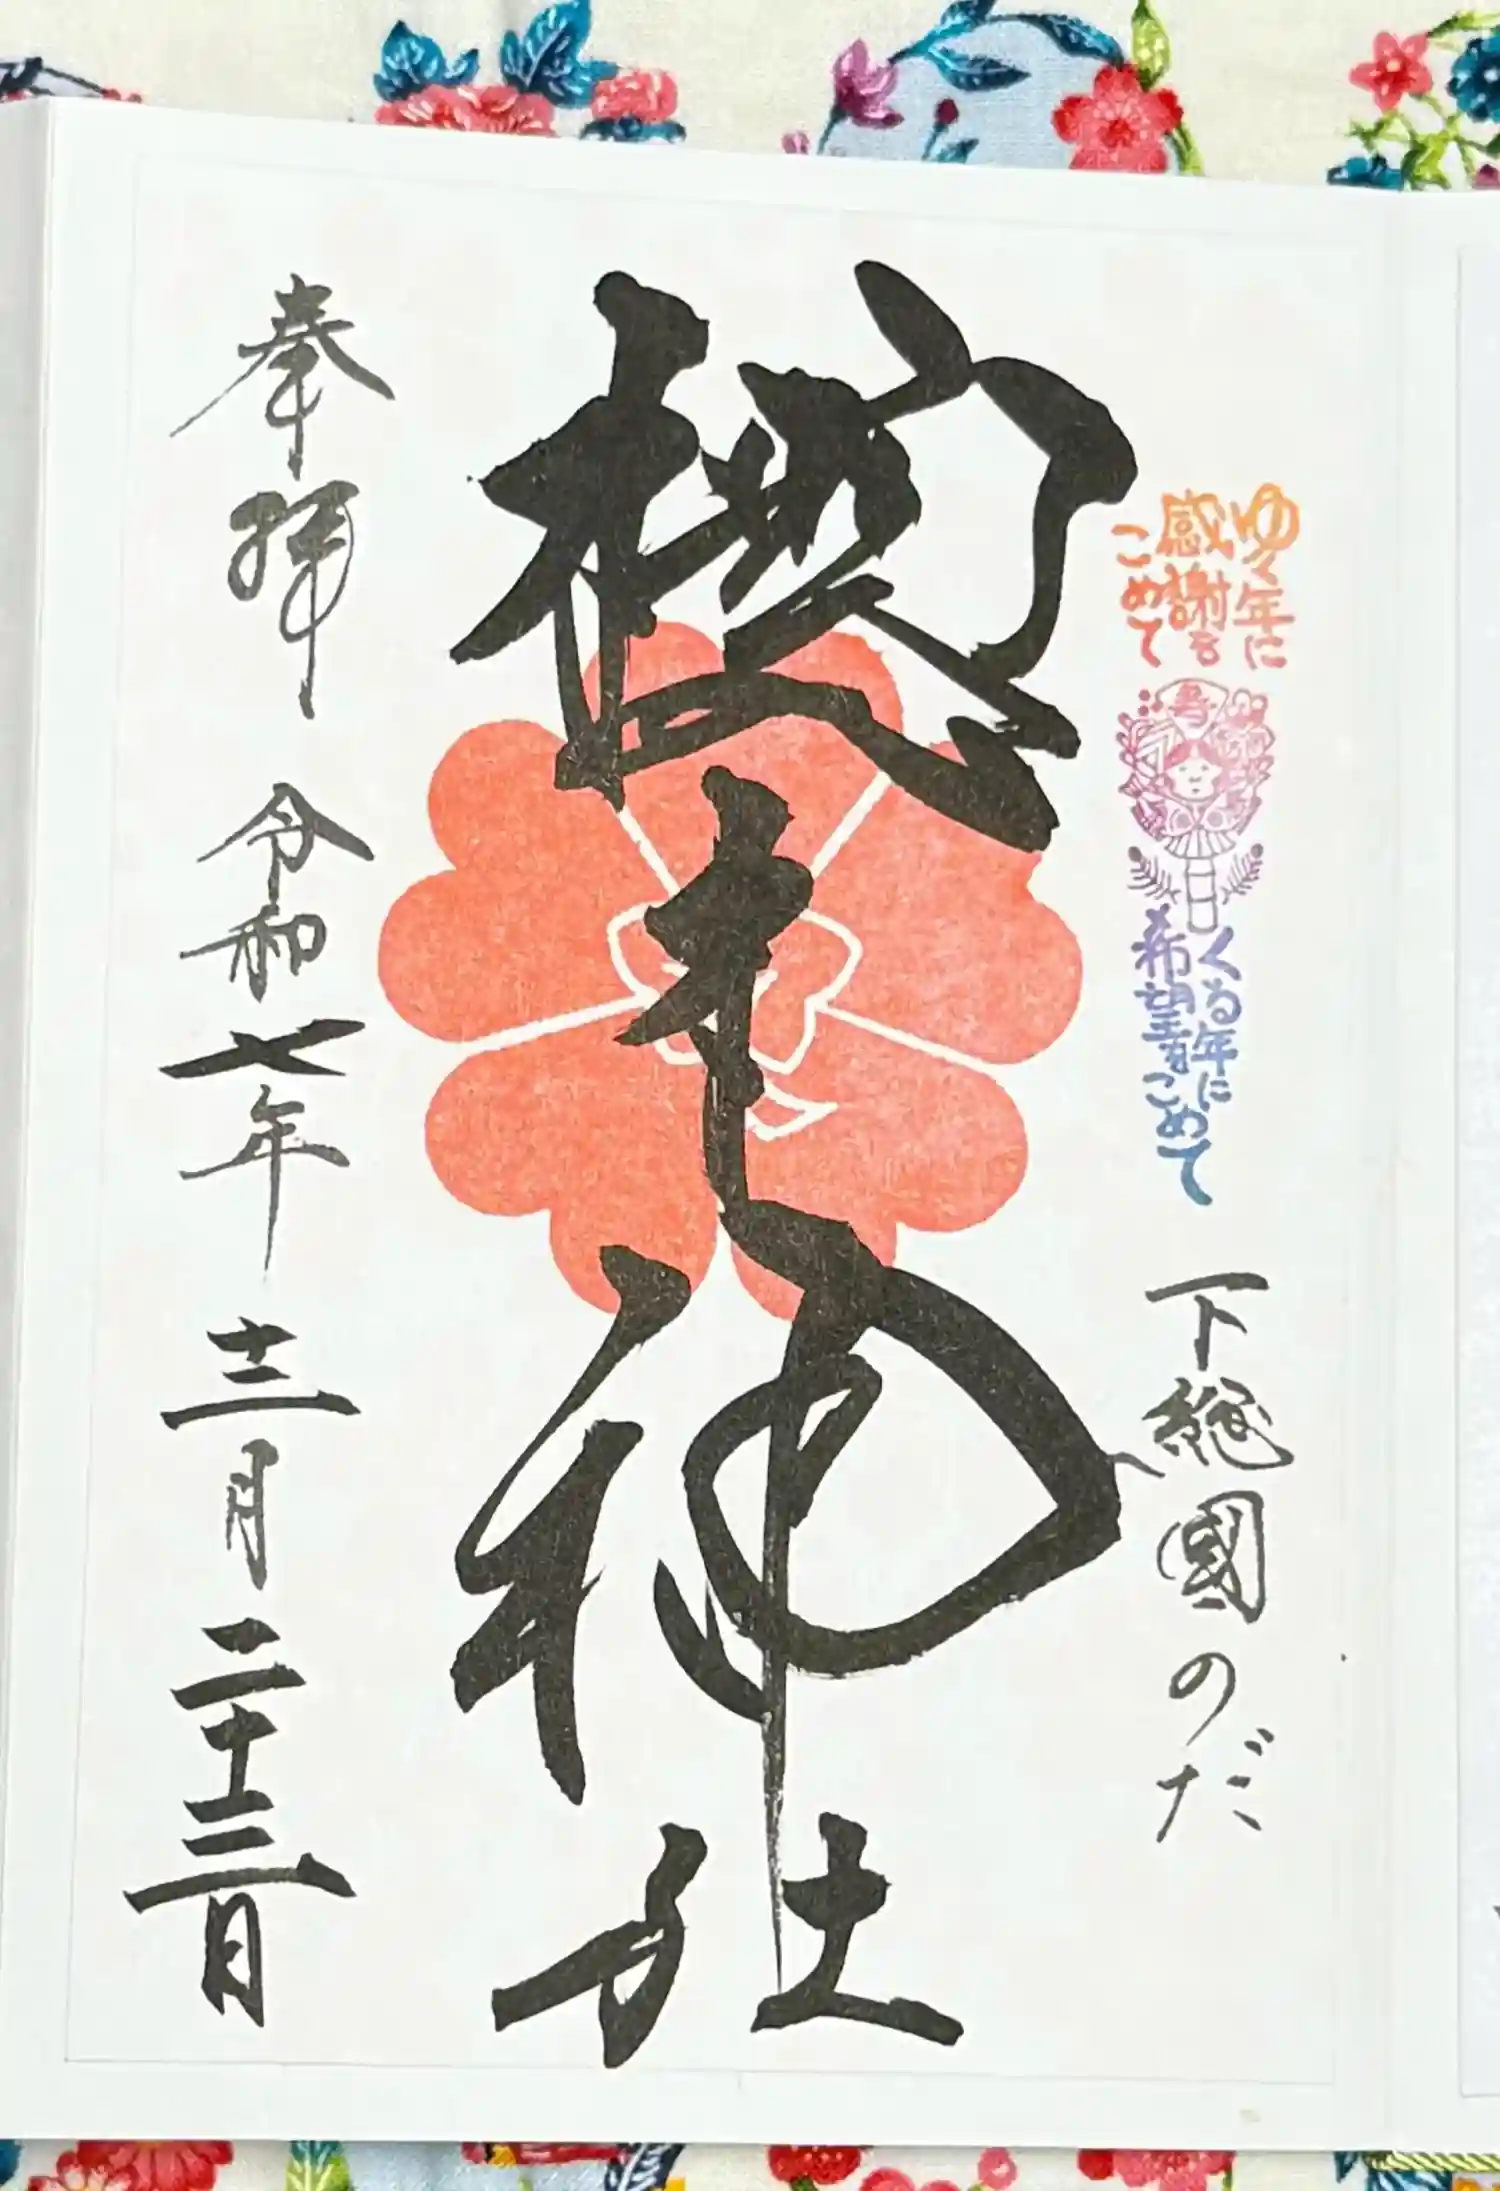 ゆく年に
感謝を
こめて
寿
くる年に
希望を
こめて
下総國のだ
櫻木神社
奉拝 令和七年 十二月 二十三日